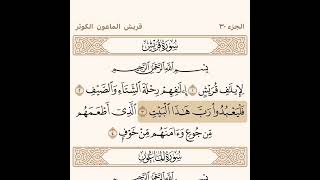 الجزء ٣٠
قريش الماعون الكوثر
سُورَةُ قُرَيْشٍ
بِسْمِ ٱللَّهِ ٱلرَّحْمَٰنِ ٱلرَّحِيمِ
لِإِيلَٰفِ قُرَيْشٍ ١ إِۦلَٰفِهِمْ رِحْلَةَ ٱلشِّتَآءِ وَٱلصَّيْفِ ٢
فَلْيَعْبُدُوا۟ رَبَّ هَٰذَا ٱلْبَيْتِ ٣ ٱلَّذِىٓ أَطْعَمَهُم
مِّن جُوعٍ وَءَامَنَهُم مِّنْ خَوْفٍۭ ٤
سُورَةُ المَاعُونِ
بِسْمِ ٱللَّهِ ٱلرَّحْمَٰنِ ٱلرَّحِيمِ